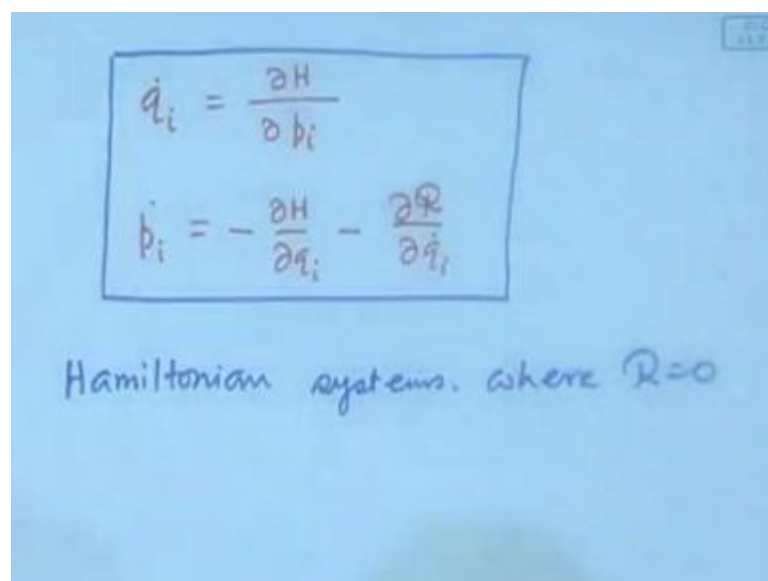 q̇ᵢ = ∂H / ∂pᵢ
ṗᵢ = - ∂H / ∂qᵢ - ∂R / ∂q̇ᵢ
Hamiltonian systems. where R=0